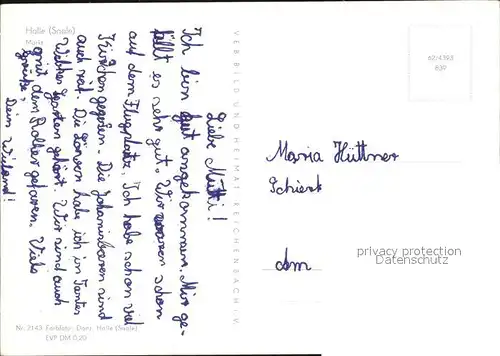 Halle (Saale)
Markt
Liebe Mutti!
Ich bin gut angekommen. Mir ge-
fällt es sehr gut. Wir waren schon
auf dem Flugplatz. Ich habe schon viel
Kirschen gegessen. Die Johannisbeeren sind
auch reif. Die
habe ich in Tantes
Garten gehört. Wir sind auch
mit dem Roller gefaren. Viele
grüße,
Dein Wieland!
VEB BILD UND HEIMAT REICHENBACH i. V.
62/4393
839
Maria Hüttner
Schierk
privacy protection
Datenschutz
Nr. 2143 Farbfoto: Dorr, Halle (Saale)
EVP DM 0,20